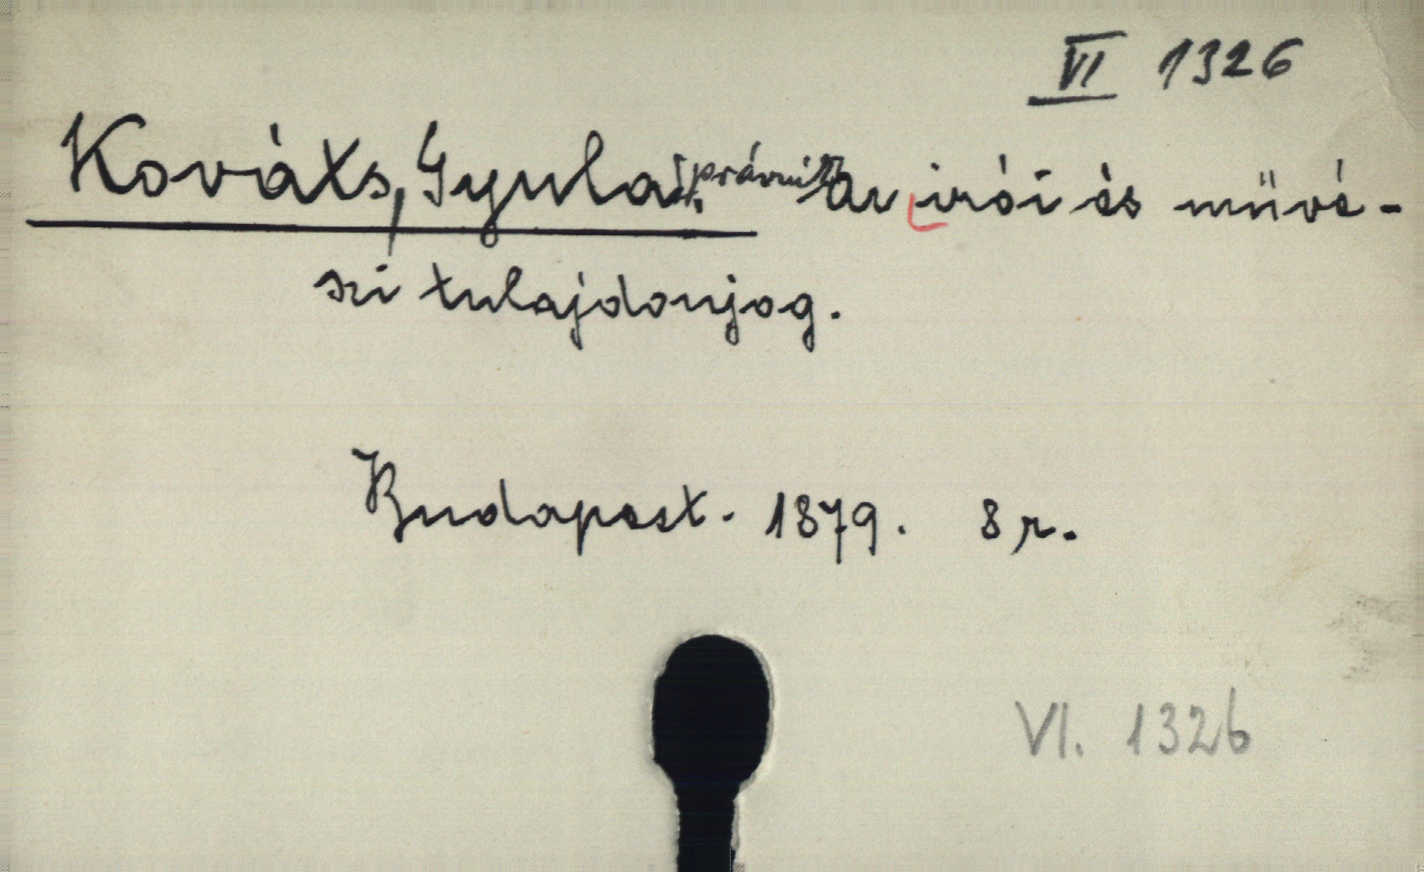 VI 1326
Kováts, Gyula. [právnik] Az irói és müvé-
szi tulajdonjog.
Budapest. 1879. 8 r.
VI. 1326